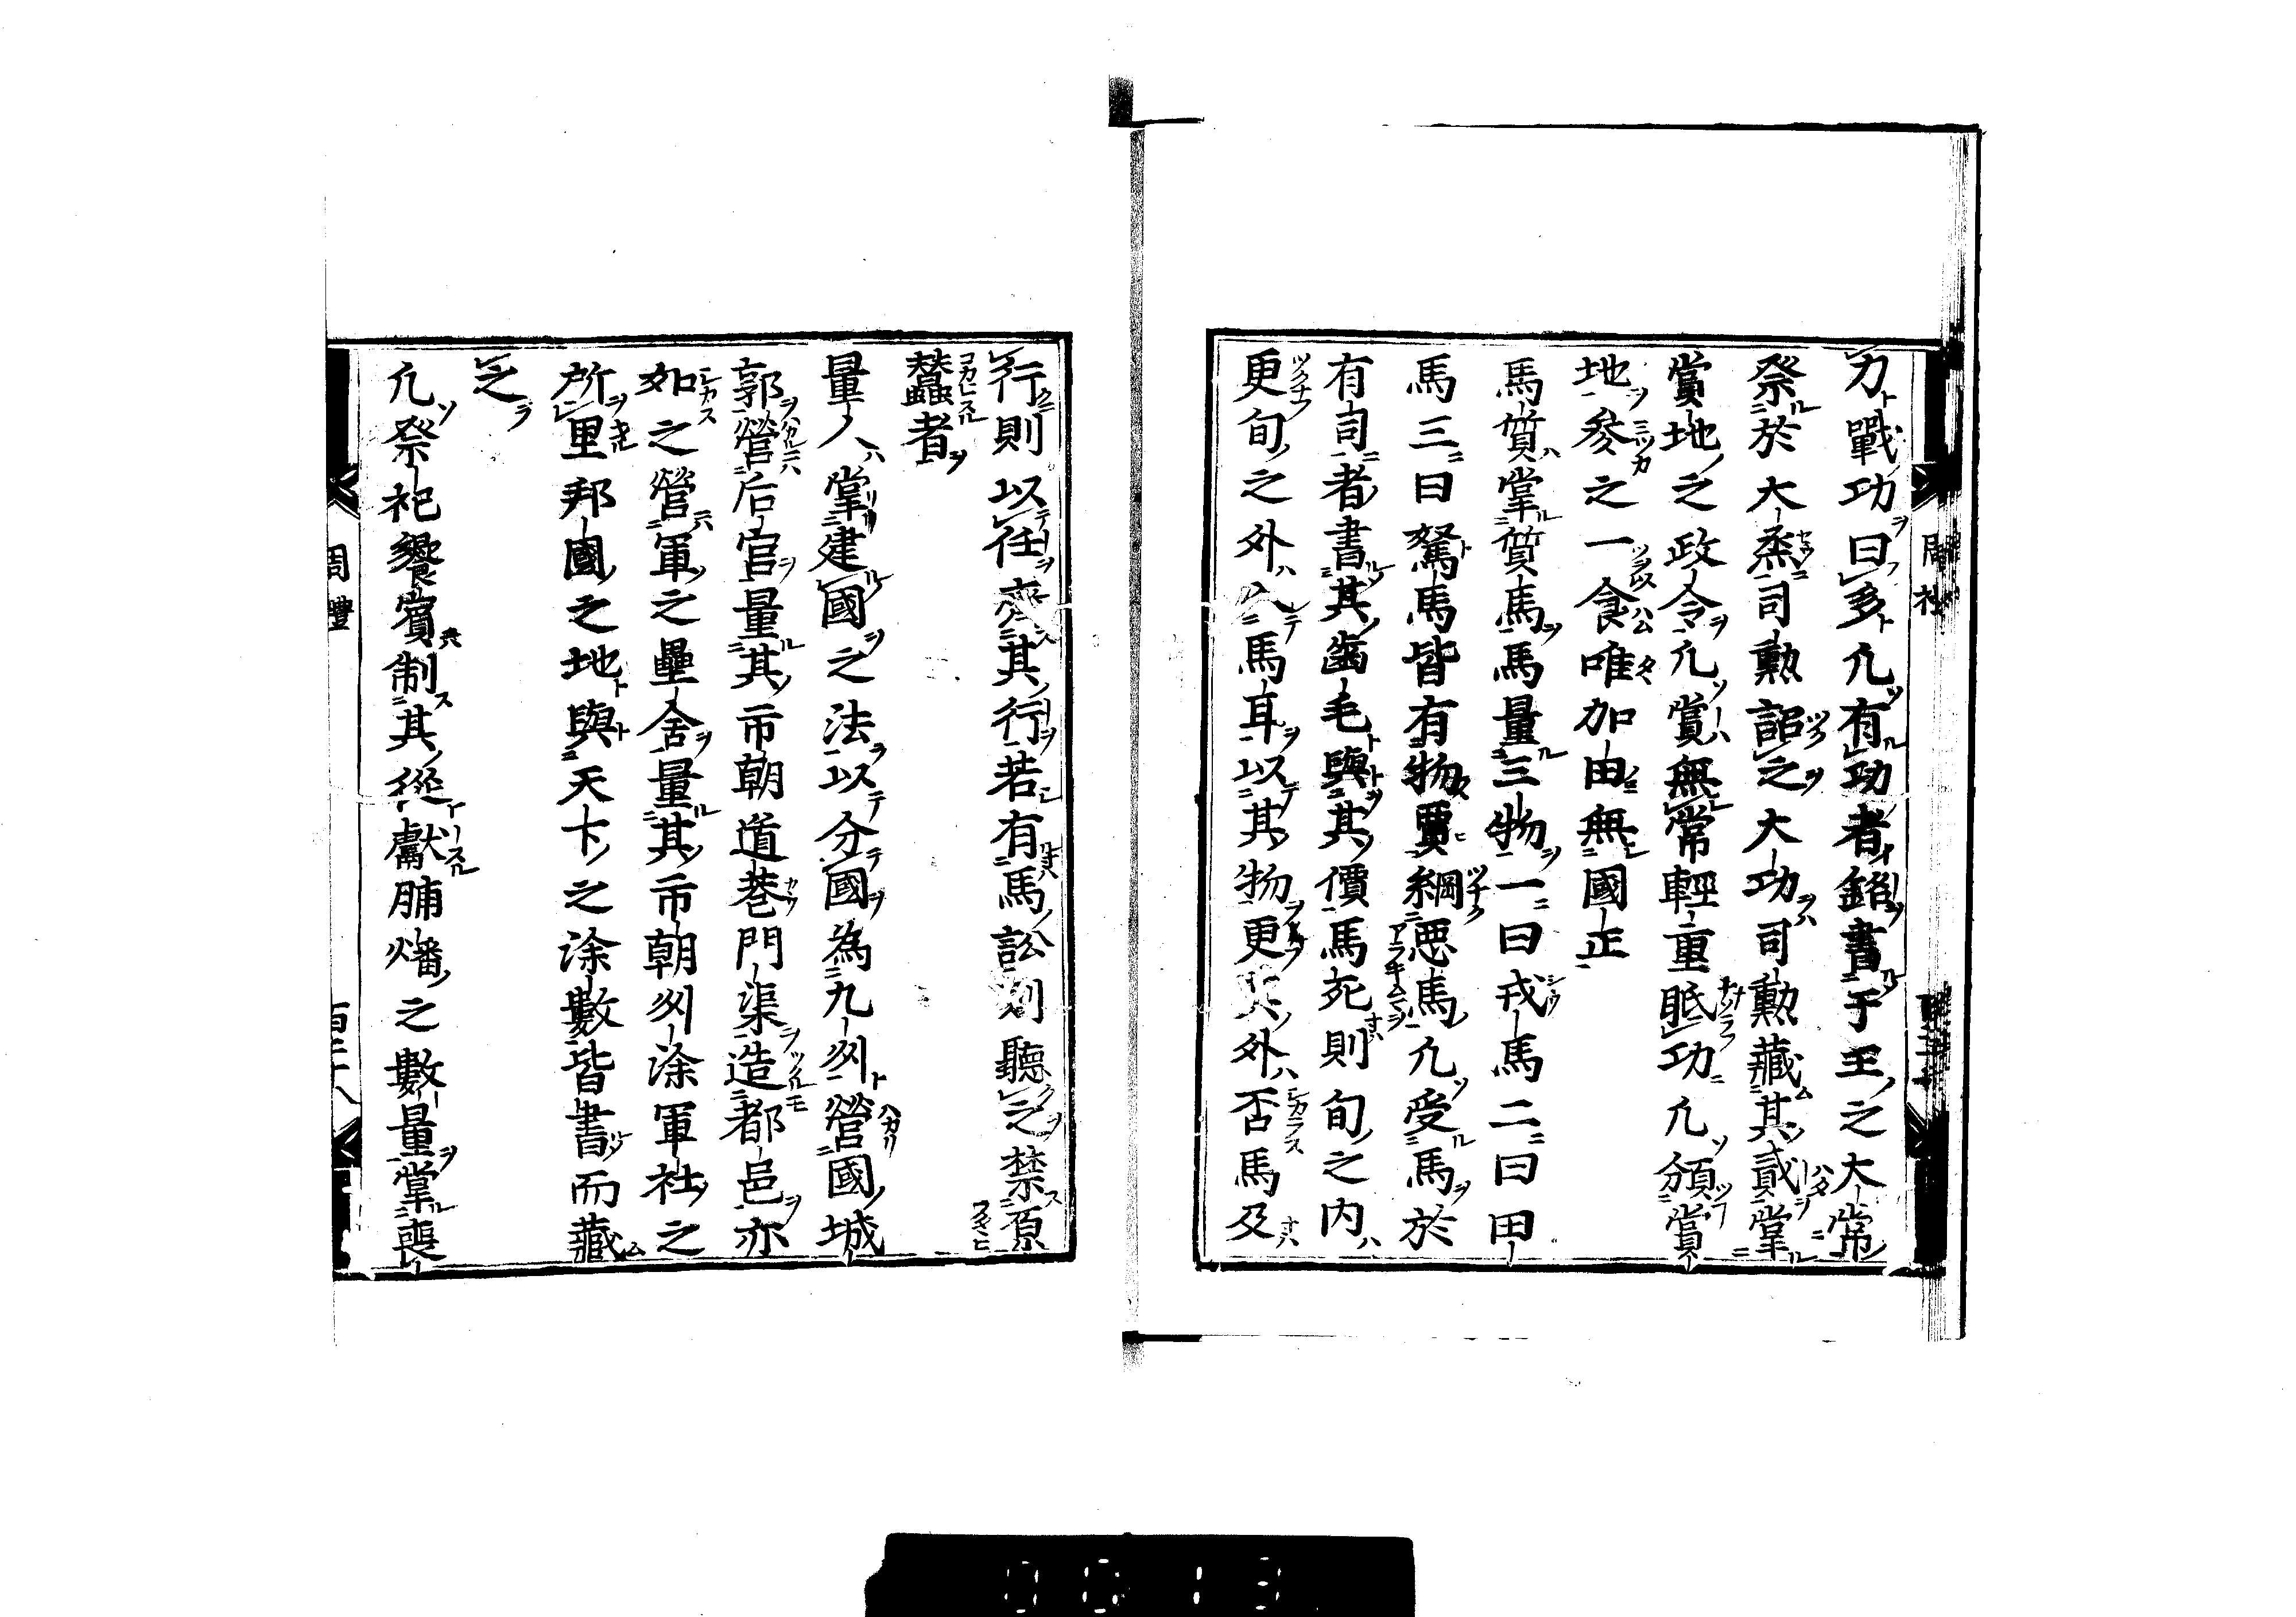 力戰功曰多凢有功者銘書于王之大常
祭於大烝司勲詔之大功司勲藏其貳掌
賞地之政令凢賞無常輕重眡功凢頒賞
地參之一食唯加田無國正
馬質掌質馬馬量三物一曰戎馬二曰田
馬三曰駑馬皆有物賈綱悪馬凢受馬於
有司者書其齒毛與其價馬死則旬之内
更旬之外入馬耳以其物更其外否馬及
行則以任齊其行若有馬訟則聽之禁原
蠶者
量人掌建國之法以分國為九州營國城
郭營后宮量其市朝道巷門渠造都邑亦
如之營軍之壘舍量其市朝州涂軍社之
所里邦國之地與天下之涂數皆書而藏
之
凢祭祀饗賓制其從獻脯燔之數量掌喪
周禮
百三十八
0013